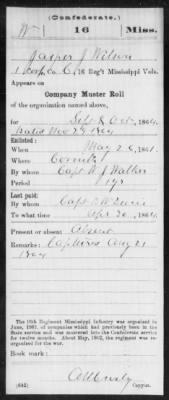 (Confederate.)
W 16 Miss.
Jasper J Wilson
1 Corp, Co. C, 16 Reg't Mississippi Vols.
Appears on
Company Muster Roll
of the organization named above,
for Sept & Oct, 1864.
dated Nov 1864
Enlisted:
When May 26, 1861.
Where Corinth
By whom Capt
Period 1 yr
Last paid:
By whom Capt
To what time Apr 30, 1864.
Present or absent Absent
Remarks: Captured Aug 21
1864
The 16th Regiment Mississippi Infantry was organized in
June, 1861, of companies which had previously been in the
State service and was mustered into the Confederate service
for twelve months. About May, 1862, the regiment was re-
organized for the war.
Book mark:
(642) Copyist.